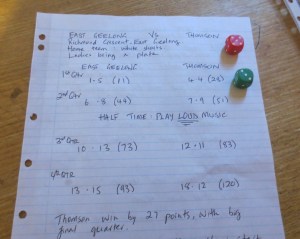 EAST GEELONG VS THOMSON
Richmond Crescent, East Geelong
Home team: white shorts
Ladies bring a plate
EAST GEELONG THOMSON
1st Qtr 1-5 (11) 4-4 (28)
2nd Qtr 6-8 (44) 7-9 (51)
HALF TIME - PLAY LOUD MUSIC
3rd QTR 10-13 (73) 12-11 (83)
4th QTR 13-15 (93) 18-12 (120)
Thomson win by 27 points, with big
final quarter.